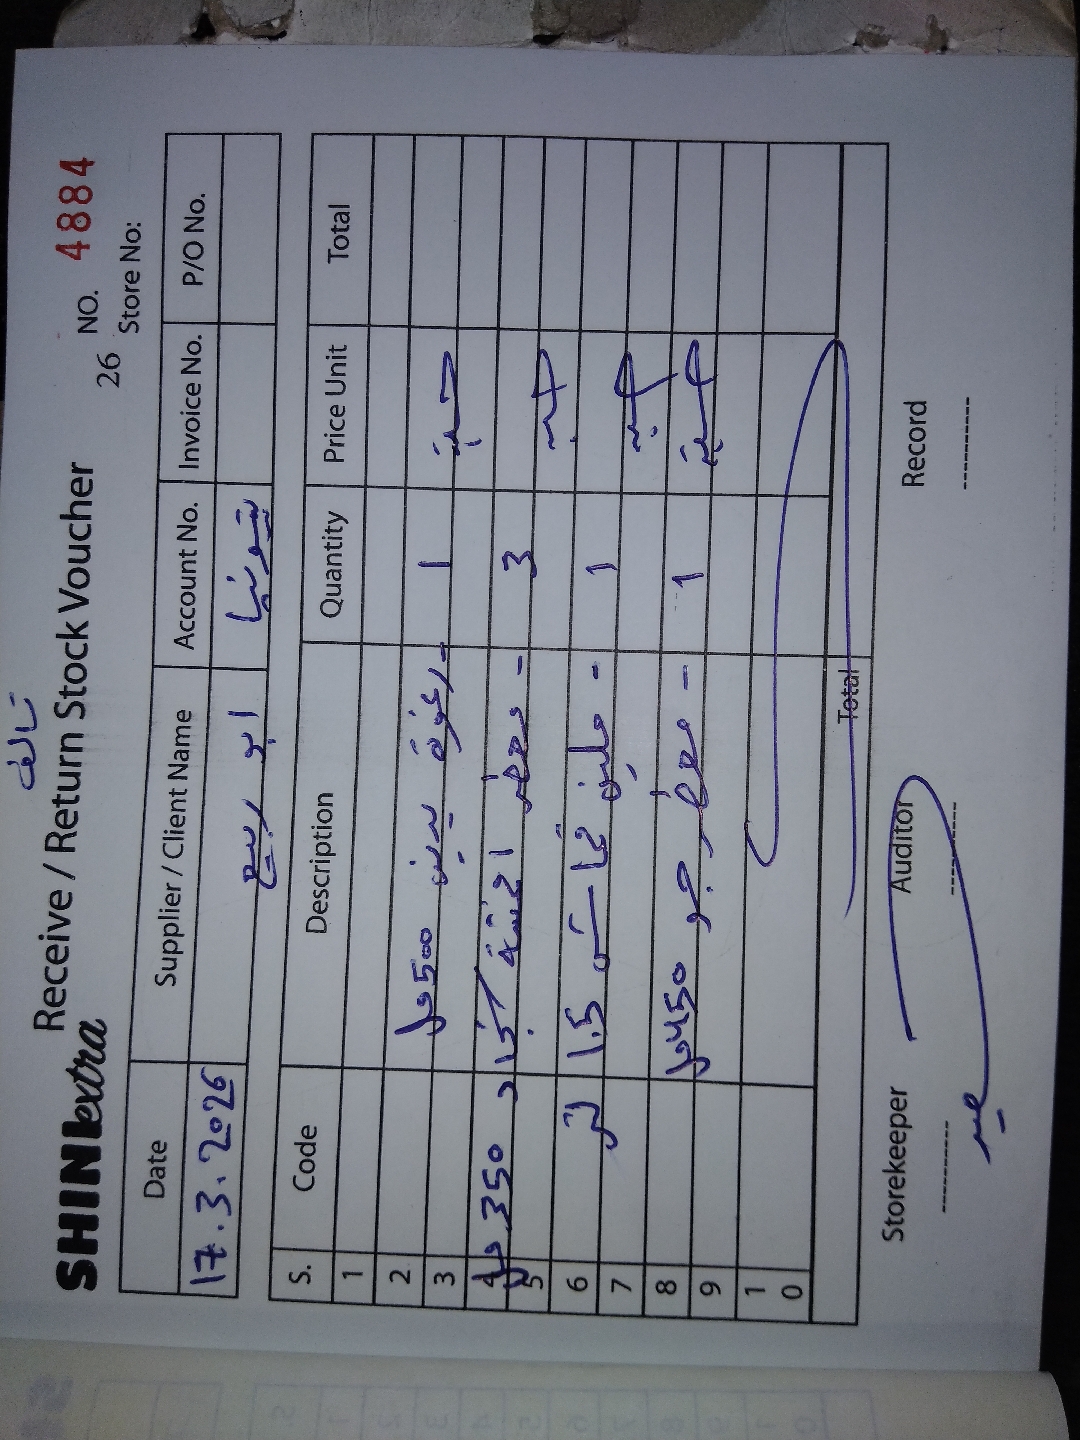 تالف
Receive / Return Stock Voucher
NO. 4884
SHINEextra
26
Store No:
Date Supplier / Client Name Account No. Invoice No. P/O No.
17.3.2026 ابو ربيع
S. Code Description Quantity Price Unit Total
1
2
3 رغوة 500 مل 1 حبة
4 - معطر 350 مل
5 3 حبة
6 - ملين 1.5 لتر 1
7 حبة
8 - معطر جو 450 مل 1 حبة
9
10
Total
Storekeeper Auditor Record